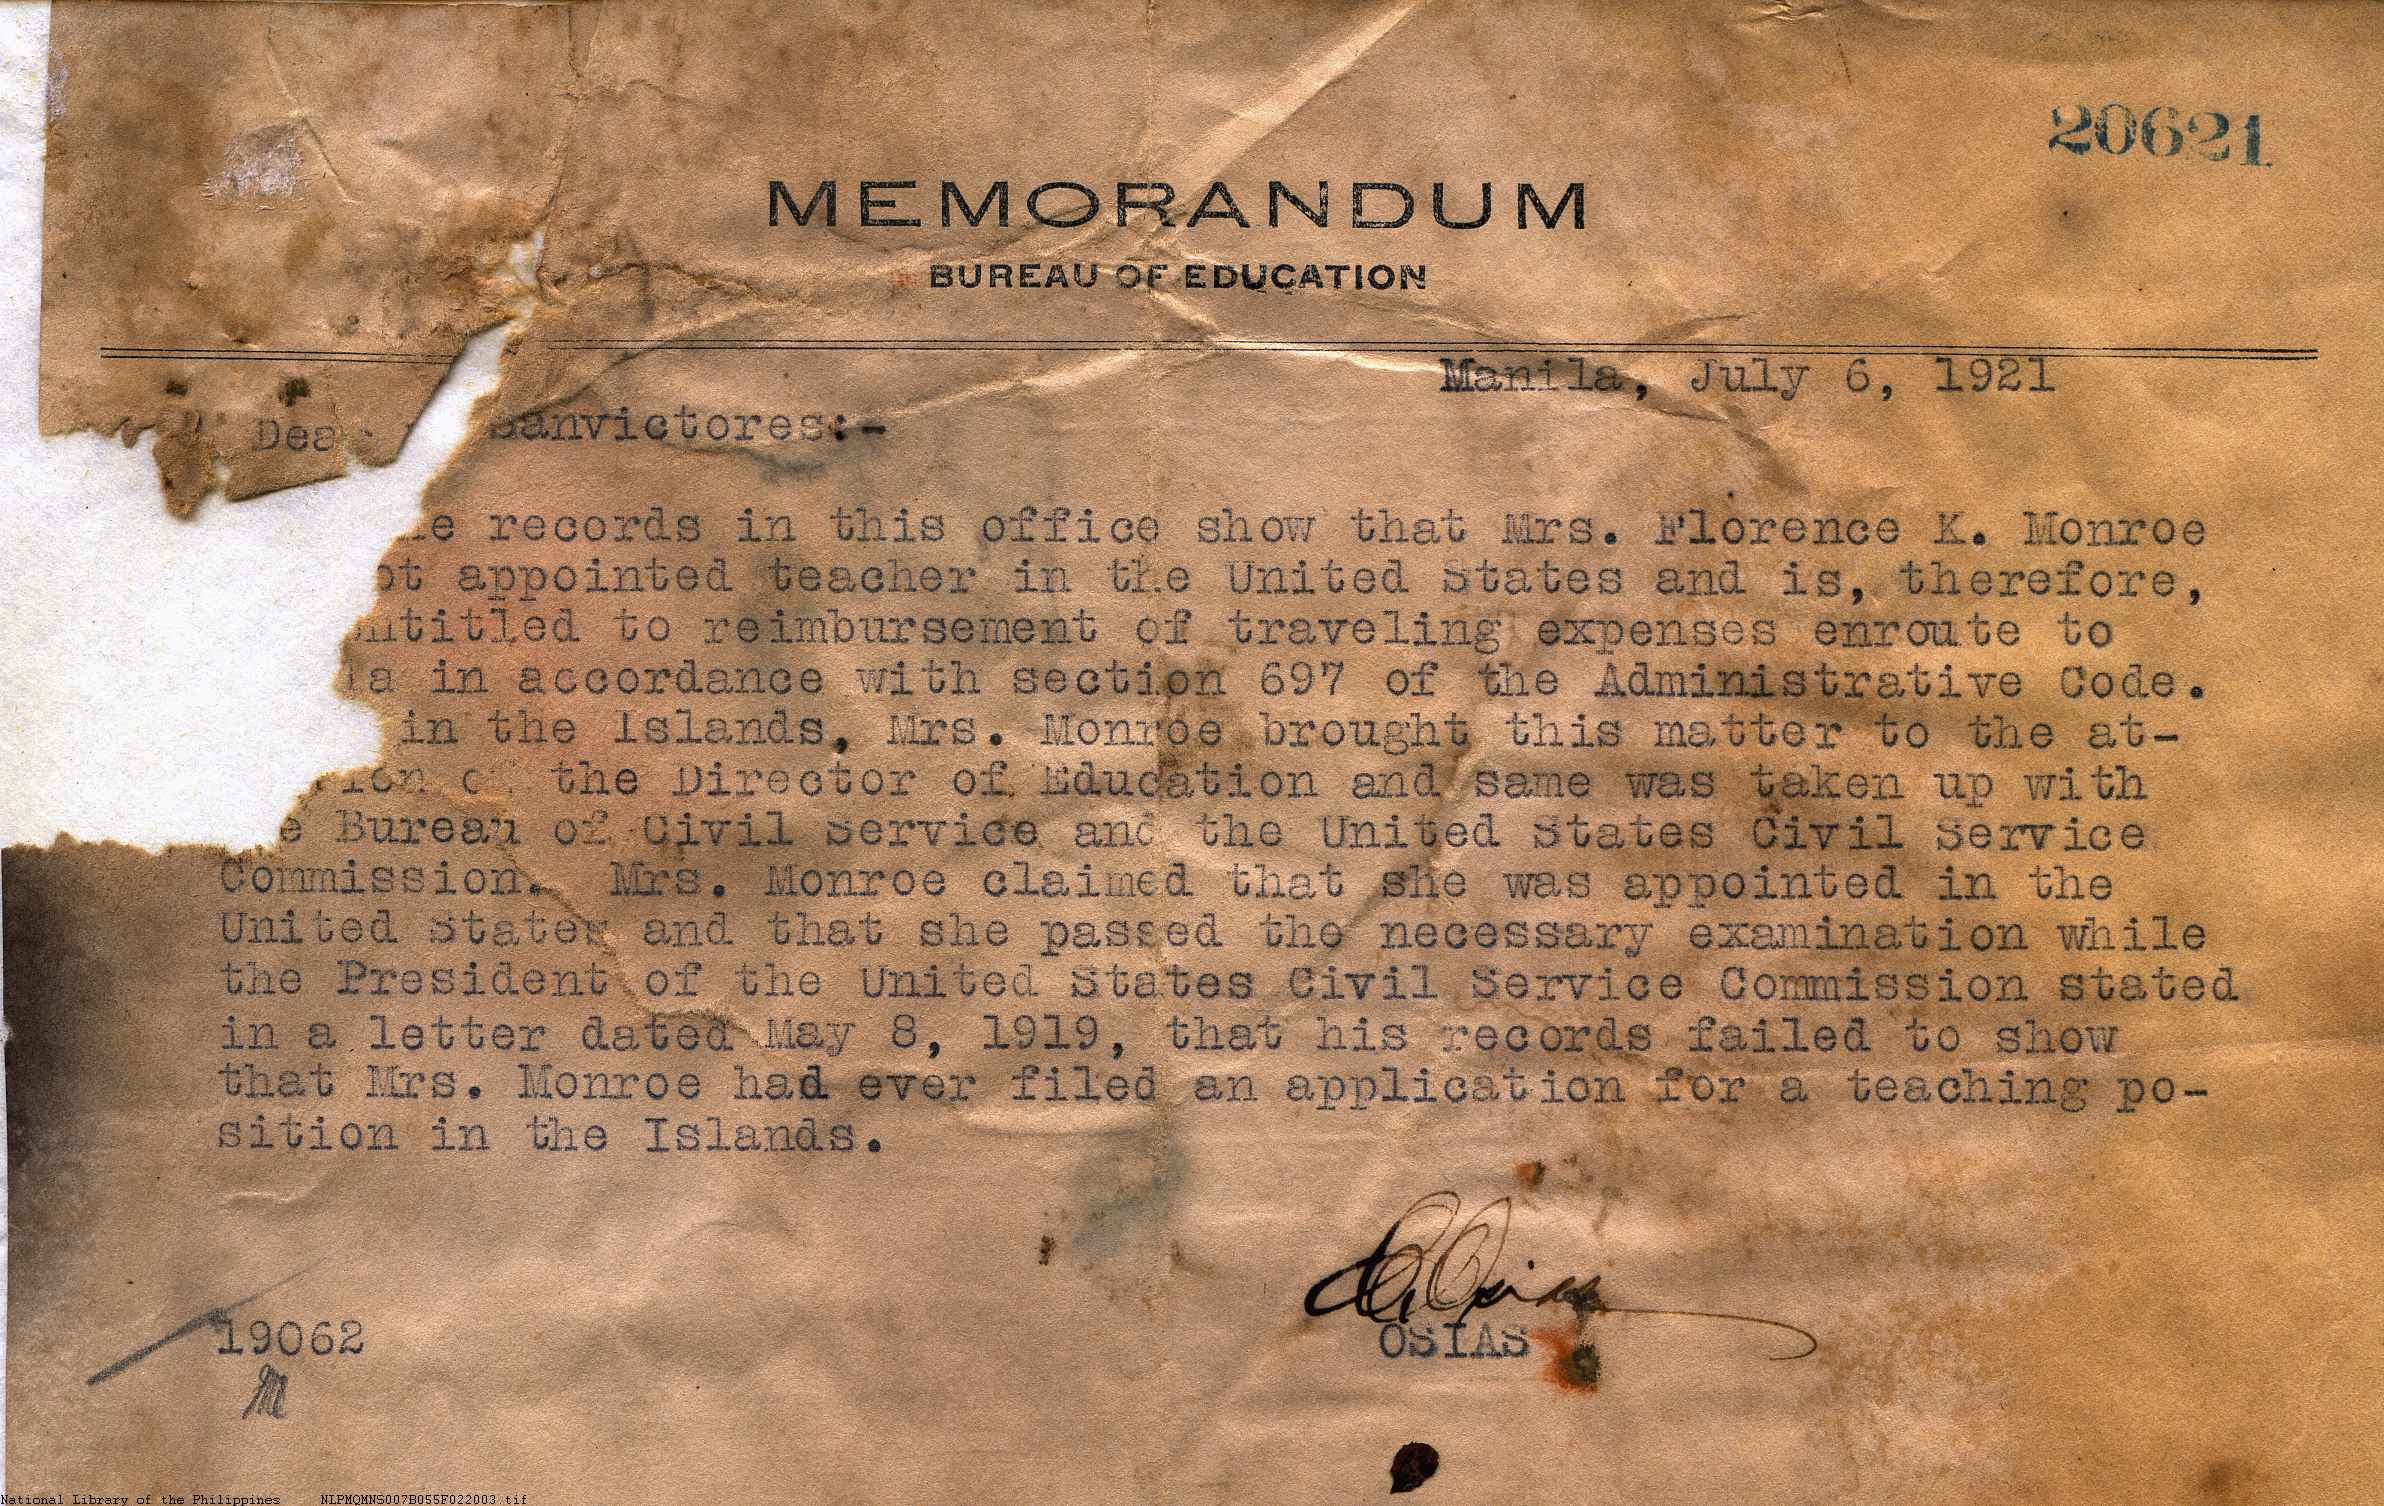 20621
MEMORANDUM
BUREAU OF EDUCATION
Manila, July 6, 1921
Dear Sanvictores:-
records in this office show that Mrs. Florence K. Monroe
appointed teacher in the United States and is, therefore,
to reimbursement of traveling expenses enroute to
in accordance with section 697 of the Administrative Code.
in the Islands, Mrs. Monroe brought this matter to the at-
the Director of Education and same was taken up with
Bureau of Civil Service and the United States Civil Service
Commission. Mrs. Monroe claimed that she was appointed in the
United States and that she passed the necessary examination while
the President of the United States Civil Service Commission stated
in a letter dated May 8, 1919, that his records failed to show
that Mrs. Monroe had ever filed an application for a teaching po-
sition in the Islands.
C. Osias
OSIAS
19062
National Library of the Philippines NLPMQMNS007B055F022003.tif